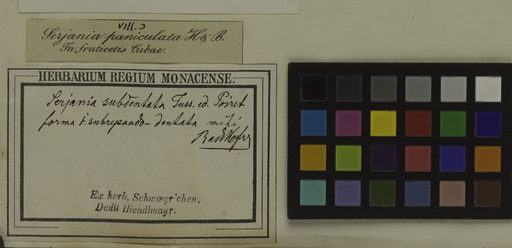 VIII. 3
Serjania paniculata H & B.
In fruticetis Cubae.
HERBARIUM REGIUM MONACENSE.
Serjania subdentata Juss. ed. Poiret
forma 1: subrepando-dentata mihi
Radlkofer
Ex herb. Schwægr'chen.
Dedit Hiendlmayr.